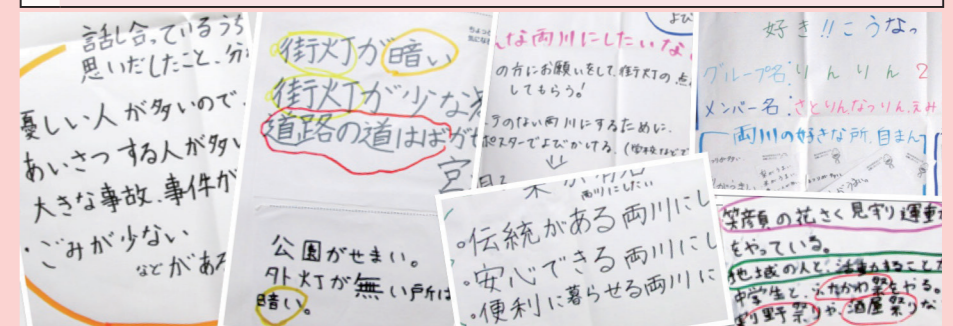 話し合っているうち
思いだしたこと、分
優しい人が多いので、
あいさつする人が多い
大きな事故、事件が
・ごみが少ない
などがある
街灯が暗い
街灯が少な
道路の道はばがせ
公園がせまい。
外灯が無い所は
暗い。
んな両川にしたいな
の方にお願いをして、街灯の、点
してもらう!
のない両川にするために、
ポスターでよびかける。(学校などで
両川にしたい
・伝統がある両川にし
・安心できる両川にし
・便利に暮らせる両川に
好き!!こうなっ
グループ名:りんりん2
メンバー名:さとりん、なつりん、えみ
両川の好きな所、自まん
笑顔の花さく見守り運動
をやっている。
地域の人と、活動することが
中学生と、ふたかわ祭をやる。
割野祭りや、酒屋祭りな